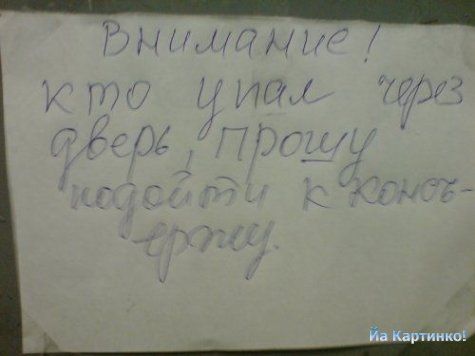 Внимание!
кто упал через
дверь, прошу
подойти к консъ-
ержу.
Йа Картинко!